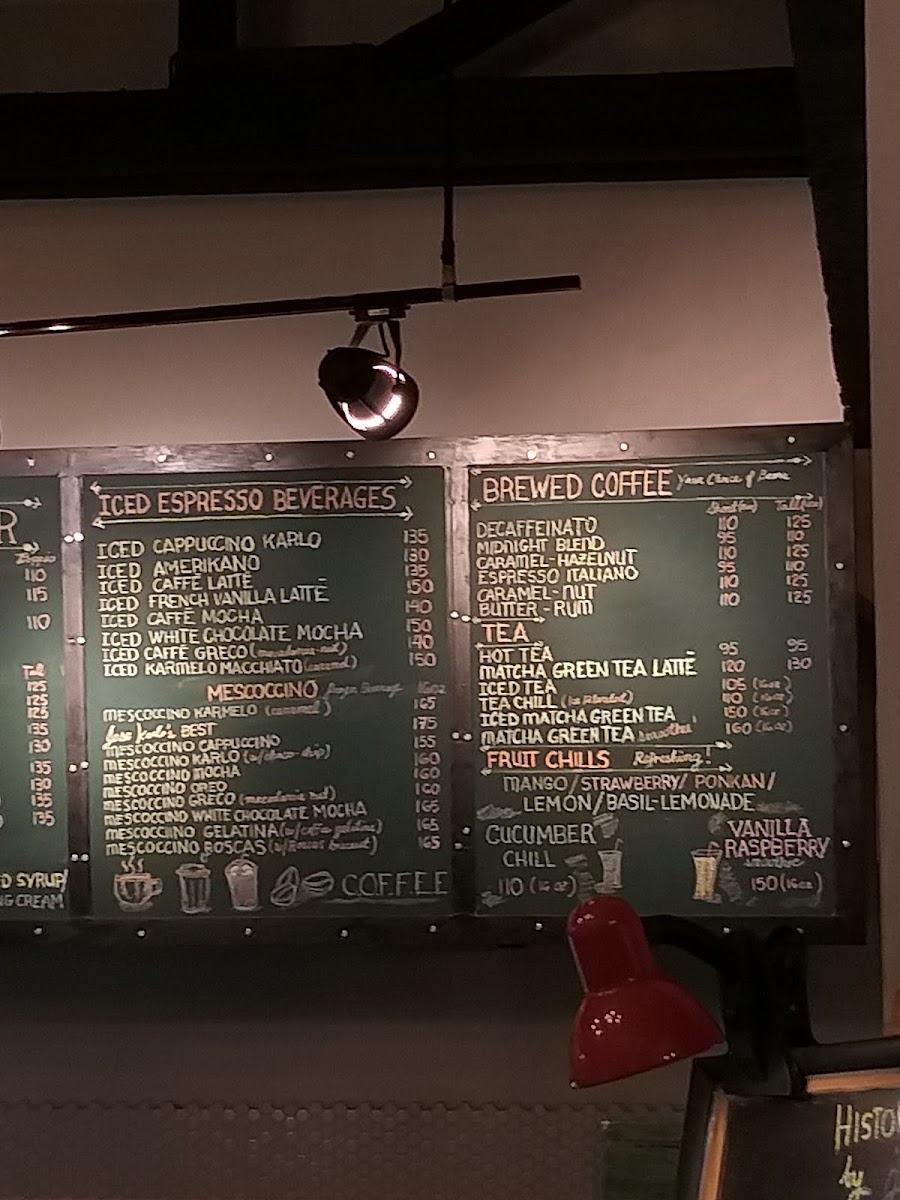 R
110
115
110
Tall
125
125
125
135
130
135
130
135
135
D SYRUP/
NG CREAM
ICED ESPRESSO BEVERAGES
ICED CAPPUCCINO KARLO 135
ICED AMERIKANO 130
ICED CAFFÈ LATTÈ 135
ICED FRENCH VANILLA LATTÈ 150
ICED CAFFÈ MOCHA 140
ICED WHITE CHOCOLATE MOCHA 150
ICED CAFFÈ GRECO (macadamia nut) 140
ICED KARMELO MACCHIATO (caramel) 150
MESCOCCINO Frozen Beverage 16oz
MESCOCCINO KARMELO (caramel) 165
BEST 175
MESCOCCINO CAPPUCCINO 155
MESCOCCINO KARLO (w/choco chip) 160
MESCOCCINO MOCHA 160
MESCOCCINO OREO 160
MESCOCCINO GRECO (macadamia nut)
MESCOCCINO WHITE CHOCOLATE MOCHA 165
MESCOCCIINO GELATINA (w/coffee gelatine) 165
MESCOCCINO ROSCAS (w/Roscas biscuit) 165
COFFEE
BREWED COFFEE Your Choice of Beans
DECAFFEINATO 110 125
MIDNIGHT BLEND 95 110
CARAMEL-HAZELNUT 110 125
ESPRESSO ITALIANO 95 110
CARAMEL-NUT 110 125
BUTTER-RUM 110 125
TEA
HOT TEA 95 95
MATCHA GREEN TEA LATTÈ 120 130
ICED TEA 105 (16oz)
TEA CHILL (Ice Blended) 110 (16oz)
ICED MATCHA GREEN TEA 150 (16oz)
MATCHA GREEN TEA smoothie 160 (16oz)
FRUIT CHILLS Refreshing!
MANGO/STRAWBERRY/PONKAN/
LEMON/BASIL-LEMONADE
CUCUMBER
CHILL
110 (16oz)
VANILLA
RASPBERRY
smoothie
150 (16oz)
HISTO
by